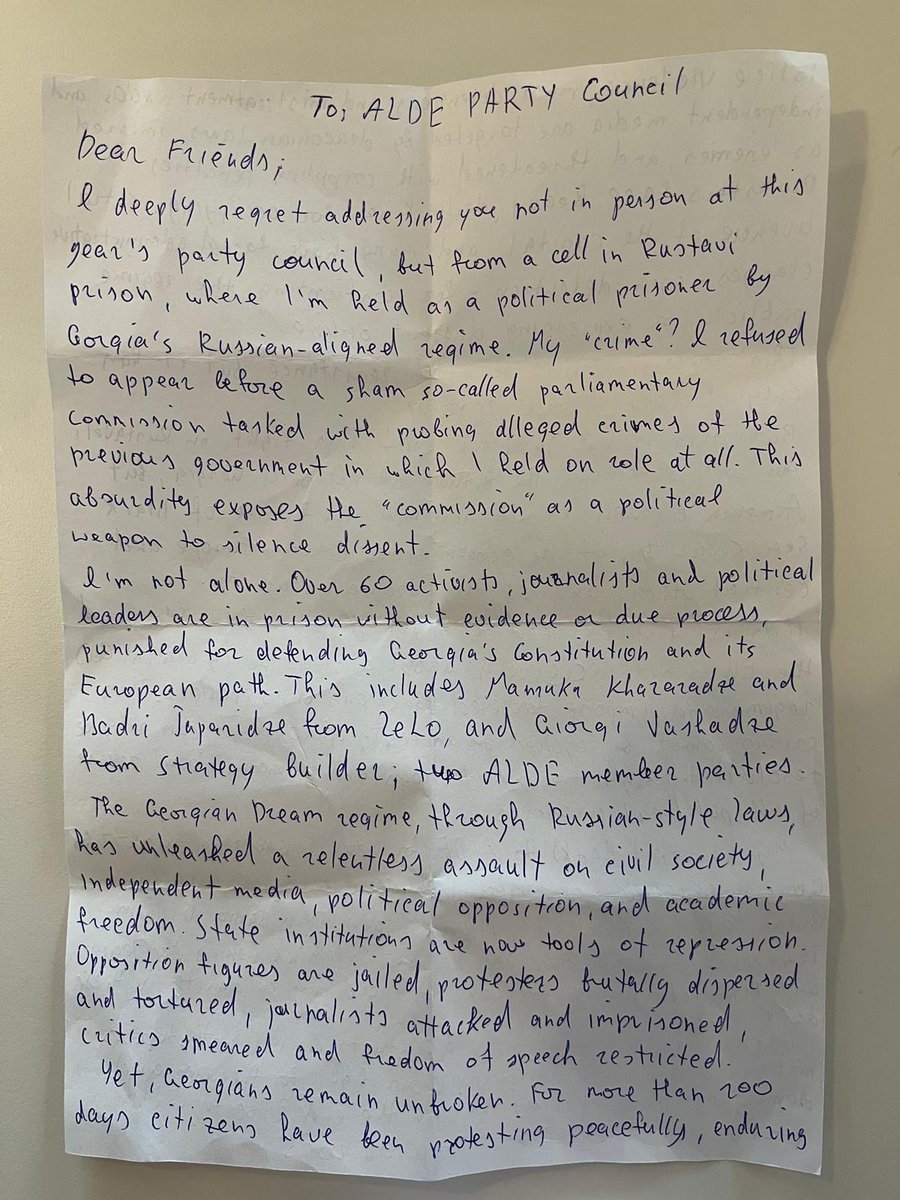 To; ALDE PARTY Council
Dear Friends;
I deeply regret addressing you not in person at this
year's party council, but from a cell in Rustavi
prison, where I'm held as a political prisoner by
Gorgia's Russian-aligned regime. My "crime"? I refused
to appear before a sham so-called parliamentary
commission tasked with probing alleged crimes of the
previous government in which I held on role at all. This
absurdity exposes the "commission" as a political
weapon to silence dissent.
I'm not alone. Over 60 activists, journalists and political
leaders are in prison without evidence or due process,
punished for defending Georgia's Constitution and its
European path. This includes Mamuka Khazaradze and
Badri Japaridze from Lelo, and Giorgi Vashadze
from Strategy Builder; two ALDE member parties.
The Georgian Dream regime, through Russian-style laws,
has unleashed a relentless assault on civil society,
independent media, political opposition, and academic
freedom. State institutions are now tools of repression.
Opposition figures are jailed, protesters brutally dispersed
and tortured, journalists attacked and imprisoned,
critics smeared and freedom of speech restricted.
Yet, Georgians remain unbroken. For more than 200
days citizens have been protesting peacefully, enduring